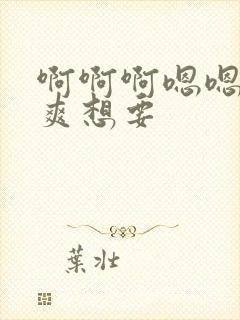 啊啊啊嗯嗯
爽想要
葉壮